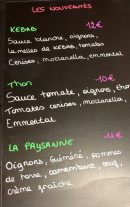 LES NOUVEAUTÉS
KEBAB 12€
Sauce blanche, oignons,
lamelles de KEBAB, tomates
Cerises, mozzarella, emmental
Thon 10€
Sauce tomate, oignons, thon
Tomates cerises, mozzarella,
Emmental
LA PAYSANNE 11€
Oignons, Guéméné, pommes
de terre, camembert, oeuf,
crème fraîche